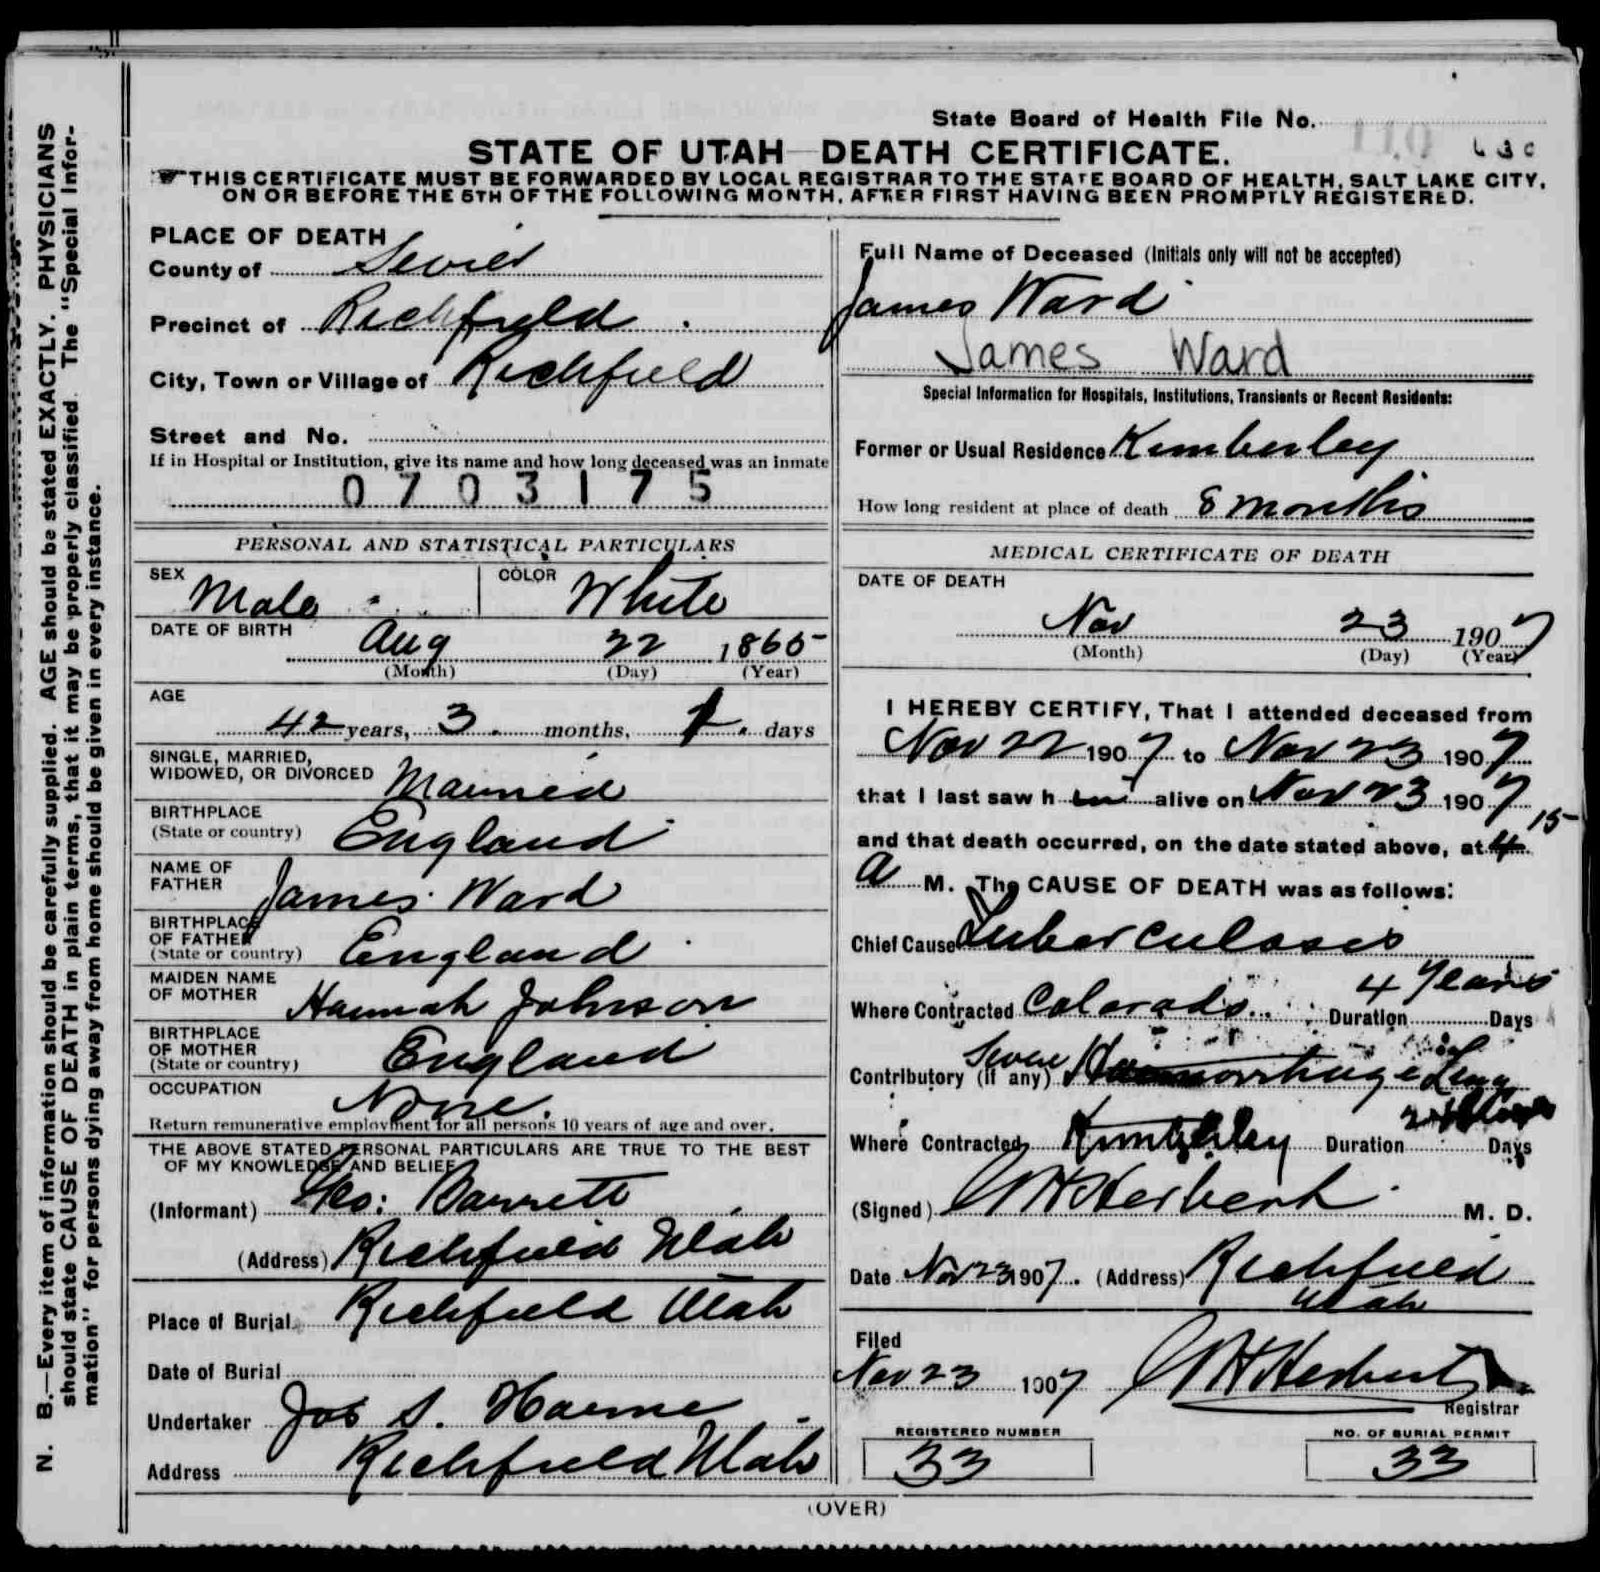 State Board of Health File No. 110 630
STATE OF UTAH—DEATH CERTIFICATE.
THIS CERTIFICATE MUST BE FORWARDED BY LOCAL REGISTRAR TO THE STATE BOARD OF HEALTH, SALT LAKE CITY,
ON OR BEFORE THE 5TH OF THE FOLLOWING MONTH, AFTER FIRST HAVING BEEN PROMPTLY REGISTERED.
N. B.—Every item of information should be carefully supplied. AGE should be stated EXACTLY. PHYSICIANS
should state CAUSE OF DEATH in plain terms, that it may be properly classified. The "Special Infor-
mation" for persons dying away from home should be given in every instance.
PLACE OF DEATH
County of Sevier
Precinct of Richfield
City, Town or Village of Richfield
Street and No.
If in Hospital or Institution, give its name and how long deceased was an inmate
0703175
PERSONAL AND STATISTICAL PARTICULARS
SEX Male COLOR White
DATE OF BIRTH Aug 22 1865
(Month) (Day) (Year)
AGE
42 years, 3 months, 1 days
SINGLE, MARRIED,
WIDOWED, OR DIVORCED Married
BIRTHPLACE
(State or country) England
NAME OF
FATHER James Ward
BIRTHPLACE
OF FATHER
(State or country) England
MAIDEN NAME
OF MOTHER Hannah Johnson
BIRTHPLACE
OF MOTHER
(State or country) England
OCCUPATION None.
Return remunerative employment for all persons 10 years of age and over.
THE ABOVE STATED PERSONAL PARTICULARS ARE TRUE TO THE BEST
OF MY KNOWLEDGE AND BELIEF
(Informant) Geo: Barrett
(Address) Richfield Utah
Place of Burial Richfield Utah
Date of Burial
Undertaker Jos S. Horne
Address Richfield Utah
Full Name of Deceased (Initials only will not be accepted)
James Ward
James Ward
Special Information for Hospitals, Institutions, Transients or Recent Residents:
Former or Usual Residence Kimberley
How long resident at place of death 8 months
MEDICAL CERTIFICATE OF DEATH
DATE OF DEATH
Nov 23 1907
(Month) (Day) (Year)
I HEREBY CERTIFY, That I attended deceased from
Nov 22 1907 to Nov 23 1907
that I last saw h im alive on Nov 23 1907
and that death occurred, on the date stated above, at 4 15
A M. The CAUSE OF DEATH was as follows:
Chief Cause Tuberculosis
Where Contracted Colorado Duration 4 Years Days
Contributory (if any) Severe Haemorrhage Lung
Where Contracted Kimberley Duration Days
(Signed) WH Herbert M. D.
Date Nov 23 1907. (Address) Richfield
Utah
Filed
Nov 23 1907 WH Herbert
Registrar
REGISTERED NUMBER NO. OF BURIAL PERMIT
33 33
(OVER)